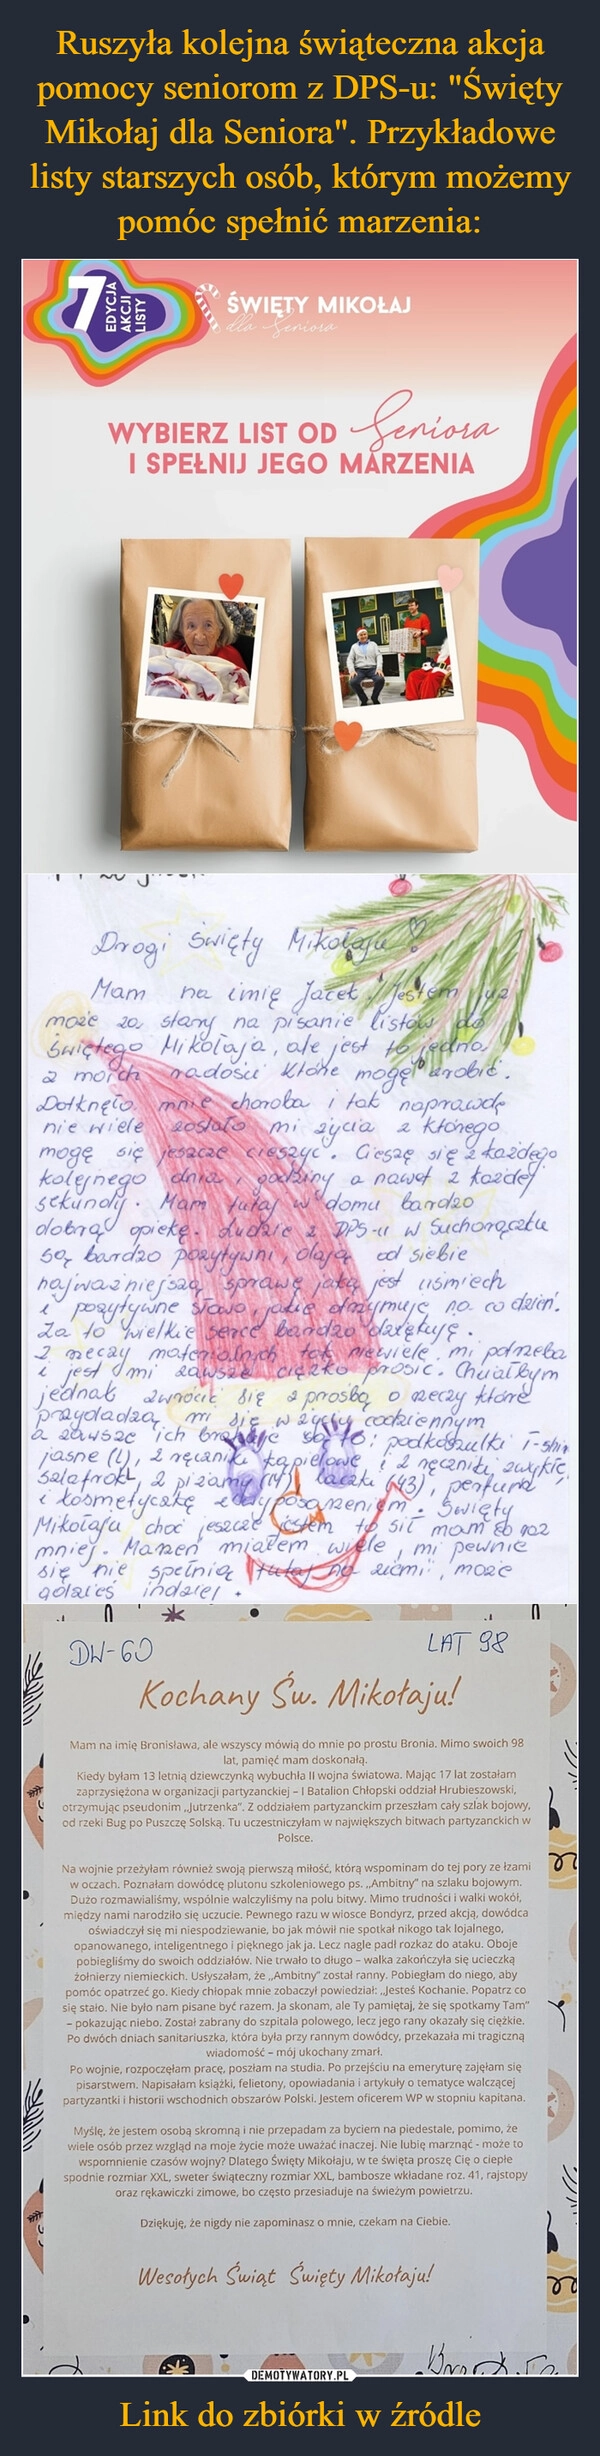 Ruszyła kolejna świąteczna akcja
pomocy seniorom z DPS-u: "Święty
Mikołaj dla Seniora". Przykładowe
listy starszych osób, którym możemy
pomóc spełnić marzenia:
7 EDYCJA
AKCJI
LISTY
ŚWIĘTY MIKOŁAJ
dla Seniora
WYBIERZ LIST OD Seniora
I SPEŁNIJ JEGO MARZENIA
Drogi Święty Mikołaju
Mam na imię Jacek. Jestem już
może za stary na pisanie listów do
Świętego Mikołaja, ale jest to jedna
z moich radości które mogę zrobić.
Dotknęła mnie choroba i tak naprawdę
nie wiele zostało mi życia z którego
mogę się jeszcze cieszyć. Cieszę się z każdego
kolejnego dnia, godziny a nawet z każdej
sekundy. Mam tutaj w domu bardzo
dobrą opiekę. Ludzie z DPS-u w Suchorączku
są bardzo pozytywni, dają od siebie
najważniejszą sprawę jaką jest uśmiech
i pozytywne słowo, jakie otrzymuję na co dzień.
Za to wielkie serce bardzo dziękuję.
Z rzeczy materialnych tak niewiele mi potrzeba
i jest mi zawsze ciężko prosić. Chciałbym
jednak zwrócić się z prośbą o rzeczy które
przydadzą mi się w życiu codziennym
a zawsze ich brakuje są to: podkoszulki T-shirt
jasne (L), 2 ręczniki kąpielowe i 2 ręczniki zwykłe,
szlafrok L, 2 piżamy laczki (43), perfumy
i kosmetyczkę z wyposażeniem. Święty
Mikołaju choć jeszcze jestem to sił mam co raz
mniej. Marzeń miałem wiele, mi pewnie
się nie spełnią tutaj na ziemi, może
gdzieś indziej.
DW-60
LAT 98
Kochany Św. Mikołaju!
Mam na imię Bronisława, ale wszyscy mówią do mnie po prostu Bronia. Mimo swoich 98
lat, pamięć mam doskonałą.
Kiedy byłam 13 letnią dziewczynką wybuchła II wojna światowa. Mając 17 lat zostałam
zaprzysiężona w organizacji partyzanckiej – I Batalion Chłopski oddział Hrubieszowski,
otrzymując pseudonim „Jutrzenka". Z oddziałem partyzanckim przeszłam cały szlak bojowy,
od rzeki Bug po Puszczę Solską. Tu uczestniczyłam w największych bitwach partyzanckich w
Polsce.
Na wojnie przeżyłam również swoją pierwszą miłość, którą wspominam do tej pory ze łzami
w oczach. Poznałam dowódcę plutonu szkoleniowego ps. „Ambitny" na szlaku bojowym.
Dużo rozmawialiśmy, wspólnie walczyliśmy na polu bitwy. Mimo trudności i walki wokół,
między nami narodziło się uczucie. Pewnego razu w wiosce Bondyrz, przed akcją, dowódca
oświadczył się mi niespodziewanie, bo jak mówił nie spotkał nikogo tak lojalnego,
opanowanego, inteligentnego i pięknego jak ja. Lecz nagle padł rozkaz do ataku. Oboje
pobiegliśmy do swoich oddziałów. Nie trwało to długo – walka zakończyła się ucieczką
żołnierzy niemieckich. Usłyszałam, że „Ambitny" został ranny. Pobiegłam do niego, aby
pomóc opatrzeć go. Kiedy chłopak mnie zobaczył powiedział: „Jesteś Kochanie. Popatrz co
się stało. Nie było nam pisane być razem. Ja skonam, ale Ty pamiętaj, że się spotkamy Tam"
– pokazując niebo. Został zabrany do szpitala polowego, lecz jego rany okazały się ciężkie.
Po dwóch dniach sanitariuszka, która była przy rannym dowódcy, przekazała mi tragiczną
wiadomość – mój ukochany zmarł.
Po wojnie, rozpoczęłam pracę, poszłam na studia. Po przejściu na emeryturę zajęłam się
pisarstwem. Napisałam książki, felietony, opowiadania i artykuły o tematyce walczącej
partyzantki i historii wschodnich obszarów Polski. Jestem oficerem WP w stopniu kapitana.
Myślę, że jestem osobą skromną i nie przepadam za byciem na piedestale, pomimo, że
wiele osób przez wzgląd na moje życie może uważać inaczej. Nie lubię marznąć - może to
wspomnienie czasów wojny? Dlatego Święty Mikołaju, w te święta proszę Cię o ciepłe
spodnie rozmiar XXL, sweter świąteczny rozmiar XXL, bambosze wkładane roz. 41, rajstopy
oraz rękawiczki zimowe, bo często przesiaduje na świeżym powietrzu.
Dziękuję, że nigdy nie zapominasz o mnie, czekam na Ciebie.
Wesołych Świąt Święty Mikołaju!
DEMOTYWATORY.PL
Link do zbiórki w źródle